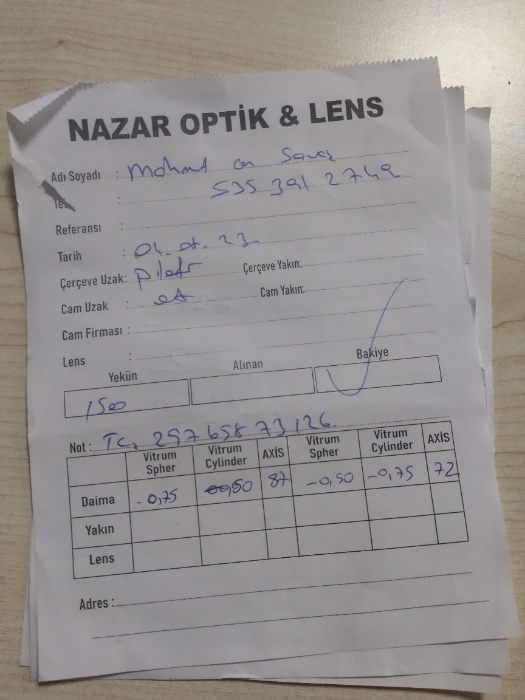 NAZAR OPTİK & LENS
Adı Soyadı : Mahmut can
535 391 2749
Referansı :
Tarih :
Çerçeve Uzak: Çerçeve Yakın:
Cam Uzak : Cam Yakın:
Cam Firması :
Lens :
Yekün Alınan Bakiye
1500
Not : TC. 29765873126
Vitrum Spher Vitrum Cylinder AXİS Vitrum Spher Vitrum Cylinder AXİS
Daima -0,75 0,50 87 -0,50 -0,75 72
Yakın
Lens
Adres :